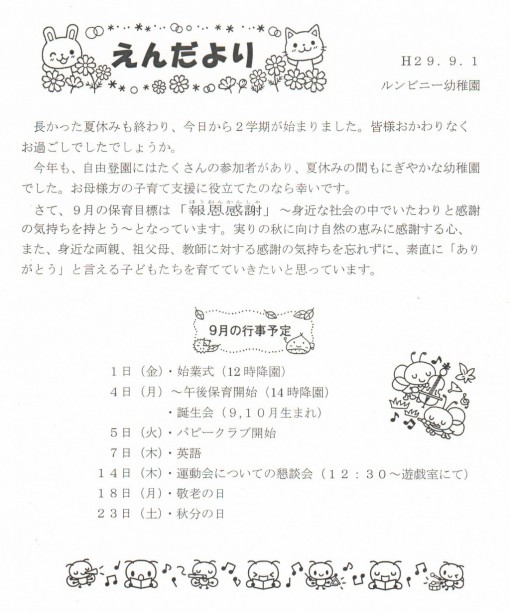 えんだより
H29.9.1
ルンビニー幼稚園
長かった夏休みも終わり、今日から2学期が始まりました。皆様おかわりなく
お過ごしでしたでしょうか。
今年も、自由登園にはたくさんの参加者があり、夏休みの間もにぎやかな幼稚園
でした。お母様方の子育て支援に役立てたのなら幸いです。
さて、9月の保育目標は「報恩感謝」~身近な社会の中でいたわりと感謝
の気持ちを持とう~となっています。実りの秋に向け自然の恵みに感謝する心、
また、身近な両親、祖父母、教師に対する感謝の気持ちを忘れずに、素直に「あり
がとう」と言える子どもたちを育てていきたいと思っています。
9月の行事予定
1日(金)・始業式(12時降園)
4日(月)~午後保育開始(14時降園)
・誕生会(9,10月生まれ)
5日(火)・パピークラブ開始
7日(木)・英語
14日(木)・運動会についての懇談会(12:30~遊戯室にて)
18日(月)・敬老の日
23日(土)・秋分の日